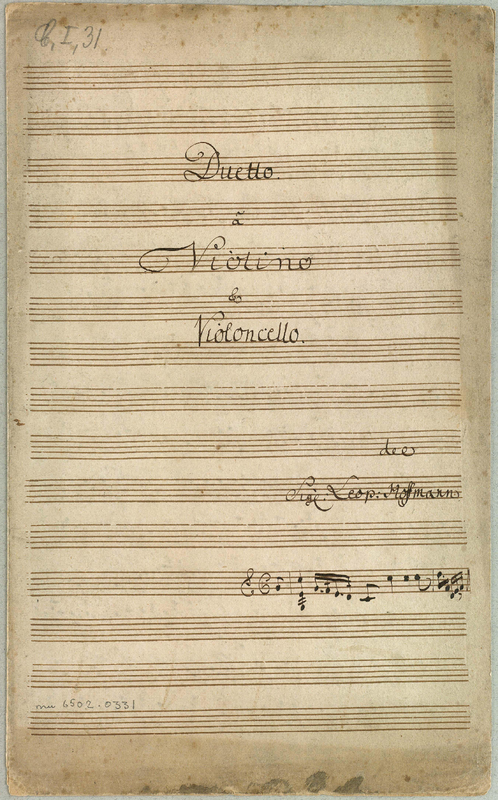 C, I, 31
Duetto.
à
Violino
&
Violoncello.
del
Sigr. Leop: Hoffmann
mu 6502.0331